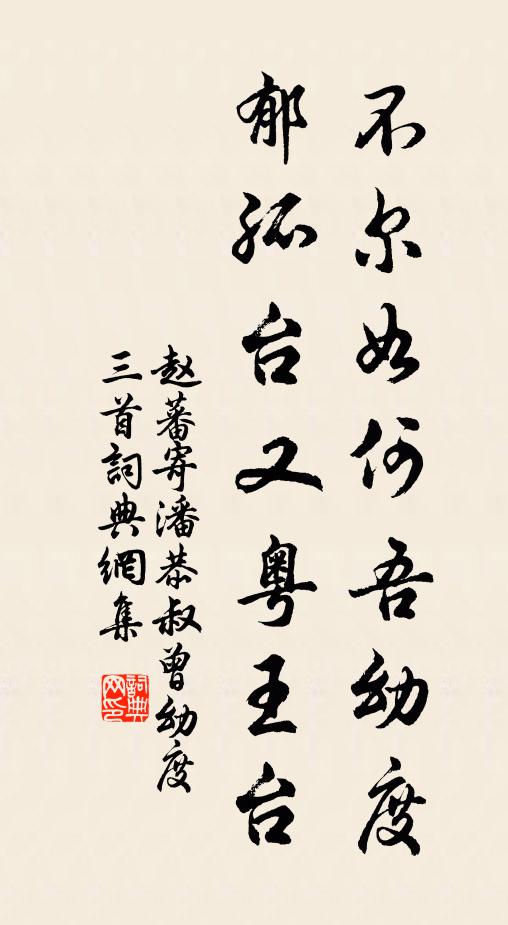 不尔如何吾幼度
郁孤台又粤王台
赵蕃寄潘恭叔曾幼度
三首詞典網集
詞典网印